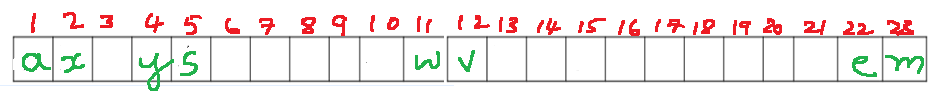 1 2 3 4 5 6 7 8 9 10 11 12 13 14 15 16 17 18 19 20 21 22 23
a x y s w v e m